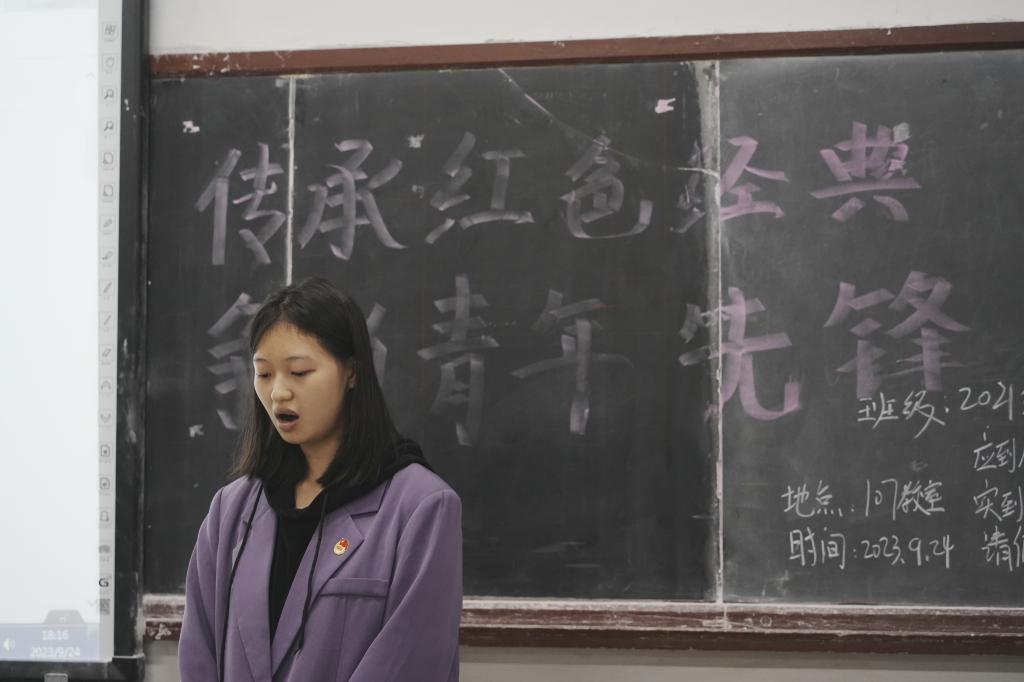 传承红色经典
青年先锋
班级：2021
应到
地点：107教室
实到
时间：2023.9.24
请假
18:16
2023/9/24